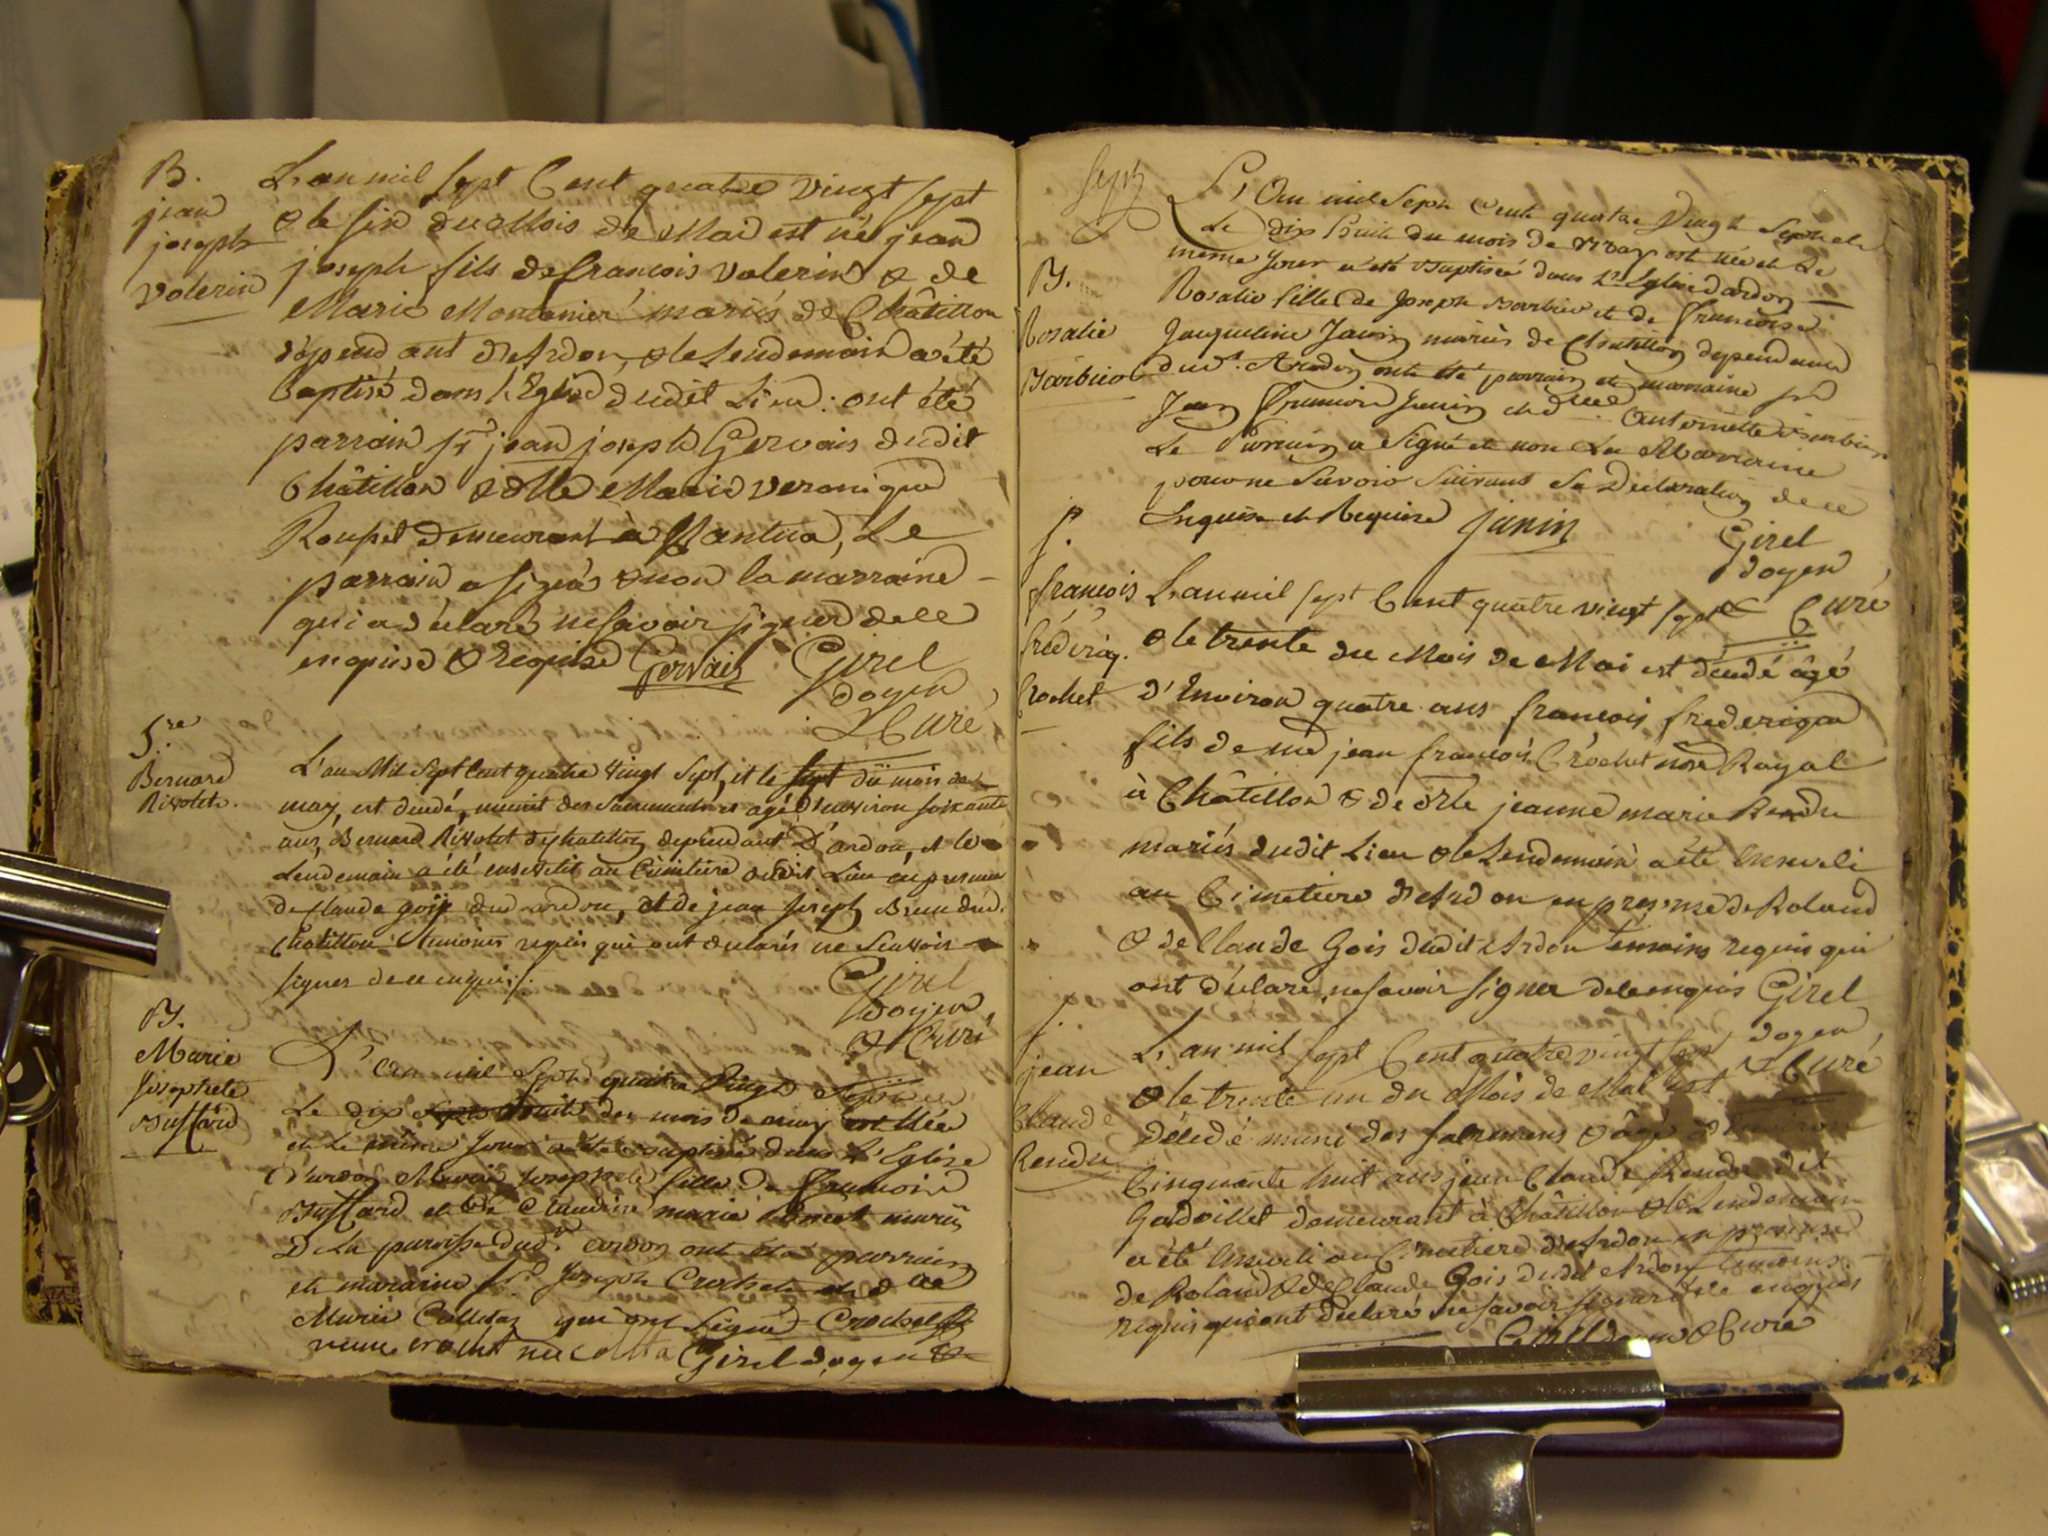 B.
jean
joseph
Volerin
L'an mil sept Cent quatre vingt sept
& le six du Mois de Mai est né jean
joseph fils de francois Volerin & de
Marie Montanier mariés de Châtillon
dépendant d'Ardon, & le Lendemain a été
Baptisé dans l'Eglise dudit Lieu: ont été
parrain sr jean joseph Gervais dudit
Châtillon & dlle Marie Veronique
Roupet demeurant à Nantua, Le
parrain a signé & non la marraine
qui a déclaré ne savoir signer de ce
enquise & requise Gervais Girel
doyen
& Curé
Sre
Bernard
Rivolet.
L'an Mil Sept Cent quatre Vingt Sept, et le sept du mois de
may, est décédé, munit des Sacements et agé d'environ soixante
ans, Bernard Rivolet de chatillon dependant D'ardon, et le
Lendemain a été ensevelit au Cimitiere dudit Lieu en presence
de Claude gois dud ardon, et de jean joseph Brun dud.
Chatillon temoins requis qui ont déclarés ne Scavoir
signer de ce enquis.
Girel
doyen
& Curé
B.
Marie
Josephete
Buffard
L'an mil Sept quatre Vingt Sept et
Le dix Sept du mois de may est Née
et Le même Jour a été Baptisée dans L'Eglise
D'ardon Marie Josephete fille de Francoise
Buffard et De Claudine marie mariés
De La paroisse dud. ardon ont été parrain
et maraine sr. Joseph Crochet et dlle
Marie Collettaz qui ont Signé Crochet
Girel doyen &
Sept
B.
Rosalie
Barbier
L'An mil Sept Cent quatre Vingt Sept et
Le dix huit du mois de may est née et Le
même Jour a été Baptisée dans L'Eglise d'ardon
Rosalie fille de Joseph Barbier et de Francoise
Jacqueline Janin mariés de Chatillon dependant
dud. Ardon ont été parrain et marraine sr
Jean Francois Janin et dlle Antoinette Barbier
Le Parrain a Signé et non La Marraine
pour ne Savoir Suivant Sa Déclaration de ce
Enquise et Requise Janin
Girel
doyen
& Curé
S.
francois
frédériq.
Crochet
L'an mil sept Cent quatre vingt sept
& le trente du Mois de Mai est décédé âgé
d'Environ quatre ans francois frederique
fils de me jean francois Crochet nore Royal
à Châtillon & de dlle jeanne marie Rendu
mariés dudit Lieu & le Lendemain a été Enseveli
au Cimetiere d'Ardon en presence de Roland
& de Claude Gois dudit Ardon temoins requis qui
ont déclaré ne savoir signer de ce enquis Girel
doyen
& Curé
S.
jean
Claude
Rendu
L'an mil sept Cent quatre vingt sept
& le trente un du Mois de Mai est
décédé muni des sacremens & âgé d'Environ
Cinquante huit ans jean Claude Rendu dit
Gadoillet demeurant à Châtillon & le Lendemain
a été Enseveli au Cimetiere d'Ardon en presence
de Roland & de Claude Gois dudit Ardon temoins
requis qui ont déclaré ne savoir signer de ce enquis
Girel doyen & Curé